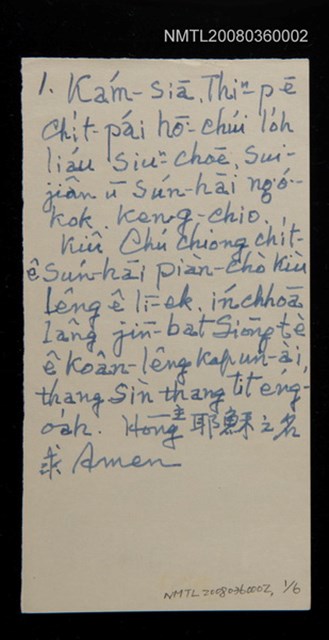 NMTL20080360002
1. Kám-siā, Thiⁿ-pē
Chit-pái hō-chúi lo̍h
liáu siuⁿ-choē, Sui-
jiân ū Sún-hāi ngó͘-
kok, keng-chio,
kiû Chú chiong chit-
ê Sún-hāi piàn-chò kiù
lêng ê lī-ek, ín chhoā
lâng jīn-bat Siōng tè
ê koân-lêng kap un-ài,
thang Sìn thang tit éng-
oa̍h. Hōng 主耶穌之名
求 Amen
NMTL20080360002, 1/6